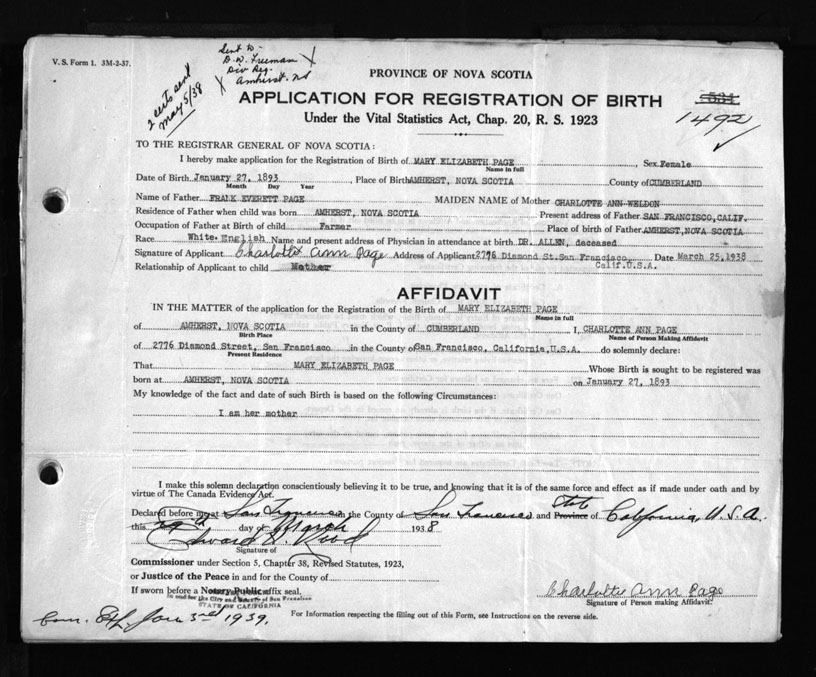 V. S. Form 1. 3M-2-37.
2 certs sent
May 5/38
Sent to -
D. W. Freeman X
Div Reg.
X Amherst. NS
PROVINCE OF NOVA SCOTIA
APPLICATION FOR REGISTRATION OF BIRTH
Under the Vital Statistics Act, Chap. 20, R. S. 1923
1492
TO THE REGISTRAR GENERAL OF NOVA SCOTIA:
I hereby make application for the Registration of Birth of MARY ELIZABETH PAGE Sex Female
Name in full
Date of Birth January 27, 1893 , Place of Birth AMHERST, NOVA SCOTIA County of CUMBERLAND
Month Day Year
Name of Father FRALK EVERETT PAGE MAIDEN NAME of Mother CHARLOTTE ANN WELDON
Residence of Father when child was born AMHERST, NOVA SCOTIA Present address of Father SAN FRANCISCO, CALIF.
Occupation of Father at Birth of child Farmer Place of birth of Father AMHERST, NOVA SCOTIA
Race White-English Name and present address of Physician in attendance at birth DR. ALLEN, deceased
Signature of Applicant Charlotte Ann Page Address of Applicant 2776 Diamond St. San Francisco, Date March 25, 1938
Calif. U.S.A.
Relationship of Applicant to child Mother
AFFIDAVIT
IN THE MATTER of the application for the Registration of the Birth of MARY ELIZABETH PAGE
Name in full
of AMHERST, NOVA SCOTIA in the County of CUMBERLAND I, CHARLOTTE ANN PAGE
Birth Place Name of Person Making Affidavit
of 2776 Diamond Street, San Francisco in the County of San Francisco, California, U.S.A. do solemnly declare:
Present Residence
That MARY ELIZABETH PAGE Whose Birth is sought to be registered was
born at AMHERST, NOVA SCOTIA on January 27, 1893
My knowledge of the fact and date of such Birth is based on the following Circumstances:
I am her mother
I make this solemn declaration conscientiously believing it to be true, and knowing that it is of the same force and effect as if made under oath and by
virtue of The Canada Evidence Act.
State
Declared before me at San Francisco in the County of San Francisco and Province of California, U.S.A.
this day of March 1938
Edward D. Wood
Signature of
Commissioner under Section 5, Chapter 38, Revised Statutes, 1923,
or Justice of the Peace in and for the County of
If sworn before a Notary Public affix seal.
In and for the City and County of San Francisco
STATE OF CALIFORNIA
Charlotte Ann Page
Signature of Person making Affidavit.
Com. Exp. Jan 3rd 1939.
For Information respecting the filling out of this Form, see Instructions on the reverse side.